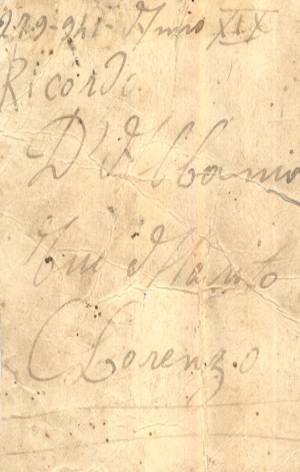 27-9-941- Anno XIX
Ricordo
D'Albania
Tuo Marito
Lorenzo